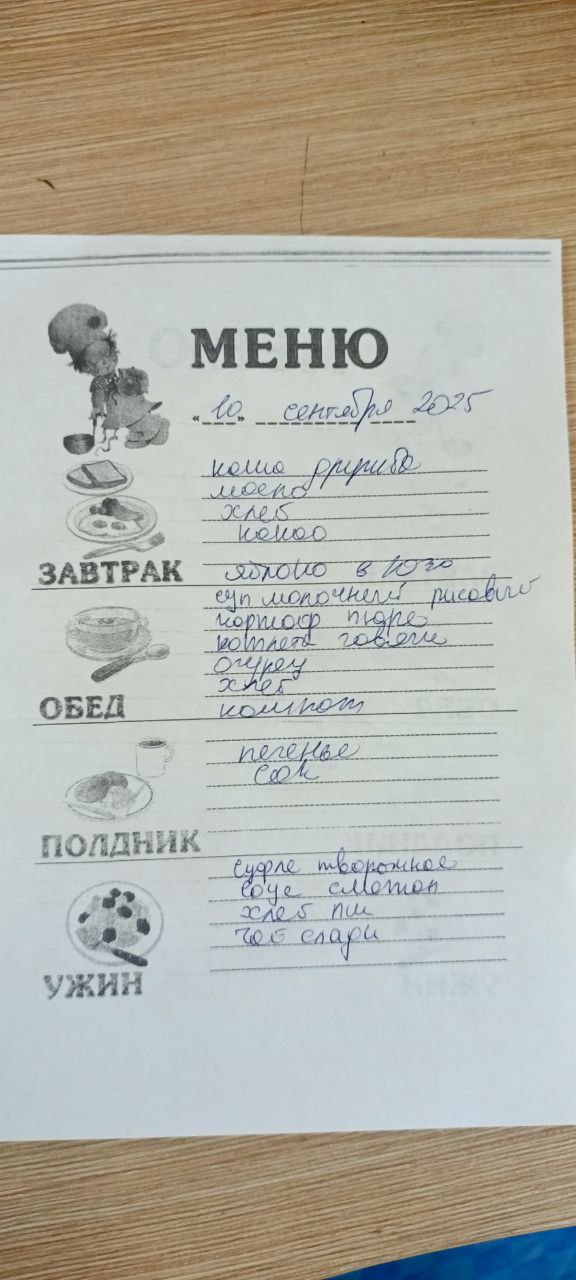 МЕНЮ
"10" сентября 2025
каша дружба
масло
хлеб
какао
ЗАВТРАК
яблоко в 10 30
суп молочный рисовый
картоф пюре
котлета говяж
огурец
хлеб
ОБЕД
компот
печенье
сок
ПОЛДНИК
суфле творожное
соус сметан
хлеб пш
чай слад
УЖИН